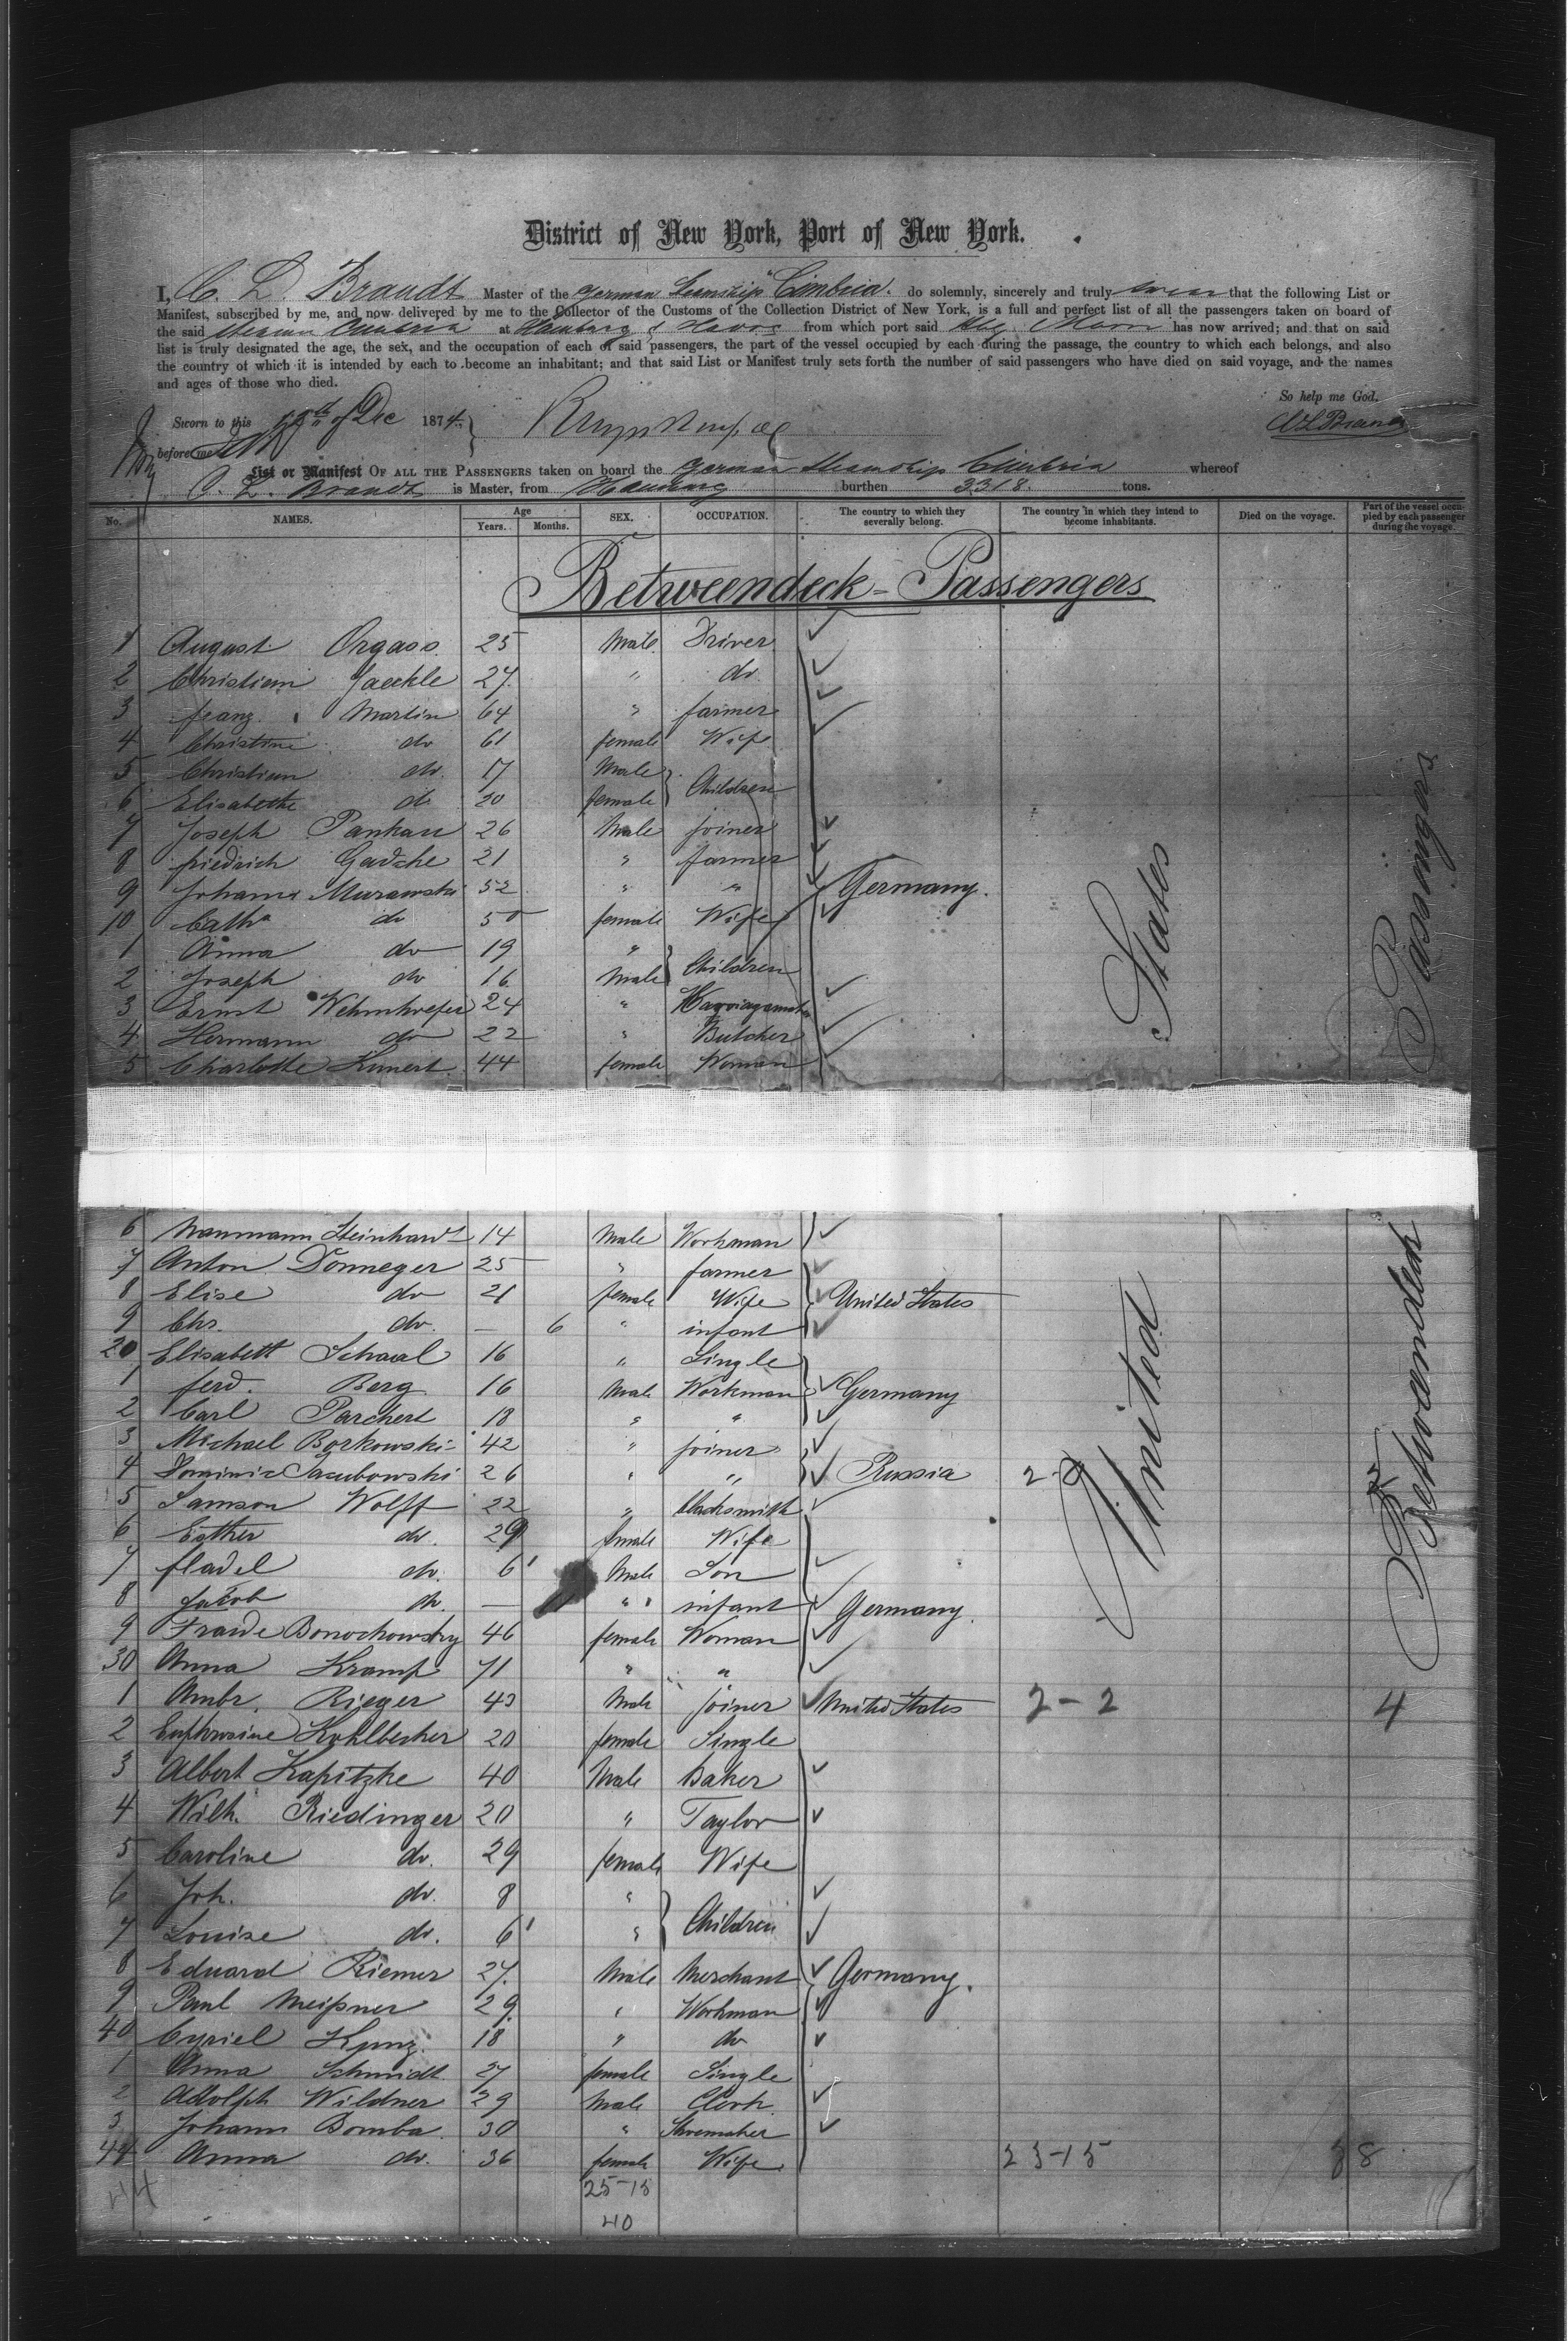 District of New York, Port of New York.
I, C. L. Brandt Master of the german Steamship "Cimbria" do solemnly, sincerely and truly swear that the following List or
Manifest, subscribed by me, and now delivered by me to the Collector of the Customs of the Collection District of New York, is a full and perfect list of all the passengers taken on board of
the said Steamer Cimbria at Hamburg & Havre from which port said has now arrived; and that on said
list is truly designated the age, the sex, and the occupation of each of said passengers, the part of the vessel occupied by each during the passage, the country to which each belongs, and also
the country of which it is intended by each to become an inhabitant; and that said List or Manifest truly sets forth the number of said passengers who have died on said voyage, and the names
and ages of those who died.
So help me God.
Sworn to this of Dec 1874. CL Brandt
before me
List or Manifest OF ALL THE PASSENGERS taken on board the german Steamship Cimbria whereof
C. L. Brandt is Master, from Hamburg burthen 3318. tons.
No. NAMES. Age Years. Months. SEX. OCCUPATION. The country to which they severally belong. The country in which they intend to become inhabitants. Died on the voyage. Part of the vessel occupied by each passenger during the voyage.
Betweendeck-Passengers
1 August Orgass 25 Male Driver
2 Christian Jaeckle 27 " do
3 franz Martin 64 " farmer
4 Christine do 61 female Wife
5 Christian do 17 Male Children
6 Elisabethe do 20 female
7 Joseph Pankau 26 Male joiner
8 friedrich Gadche 21 " farmer
9 Johann Murawski 52 " " Germany.
10 Cath do 50 female Wife
1 Anna do 19 " Children
2 Joseph do 16 Male
3 Ernst 24 "
4 Hermann do 22 " Butcher
5 Charlotte Kunert 44 female Woman
6 Naumann Steinhardt 14 Male Workman
7 Anton Donneger 25 " farmer
8 Elise do 21 female Wife United States
9 Chr. do. — 6 " infant
20 Elisabeth Schaal 16 " Single
1 ferd. Berg 16 Male Workman Germany
2 Carl Parchert 18 " "
3 Michael Borkowski 42 " joiner
4 Dominic Jacubowski 26 " " Russia 2-0
5 Samson Wolff 22 " blacksmith
6 Esther do. 29 female Wife
7 fladel do. 6 Male Son
8 Jacob do. — " infant Germany.
9 Frawde Bonochowsky 46 female Woman
30 Anna Kramp 71 " "
1 Ambr. Rieger 43 Male joiner United States 2-2 4
2 Euphrosine Kohlbecker 20 female Single
3 Albert Kapitzke 40 Male Baker
4 Wilh. Riedinger 20 " Taylor
5 Caroline do. 29 female Wife
6 Joh. do. 8 " Children
7 Louise do. 6 "
8 Eduard Riemer 27. Male Merchant Germany.
9 Paul Meißner 29. " Workman
40 Cyriel Kunz. 18 " do
1 Anna Schmidt 27 female Single
2 Adolph Wildner 29 Male Clerk
3 Johann Bomba 30 " Shoemaker
44 Anna do. 36 female Wife 23-15 38
44 25-15
40
United States
Betweendeck Passengers